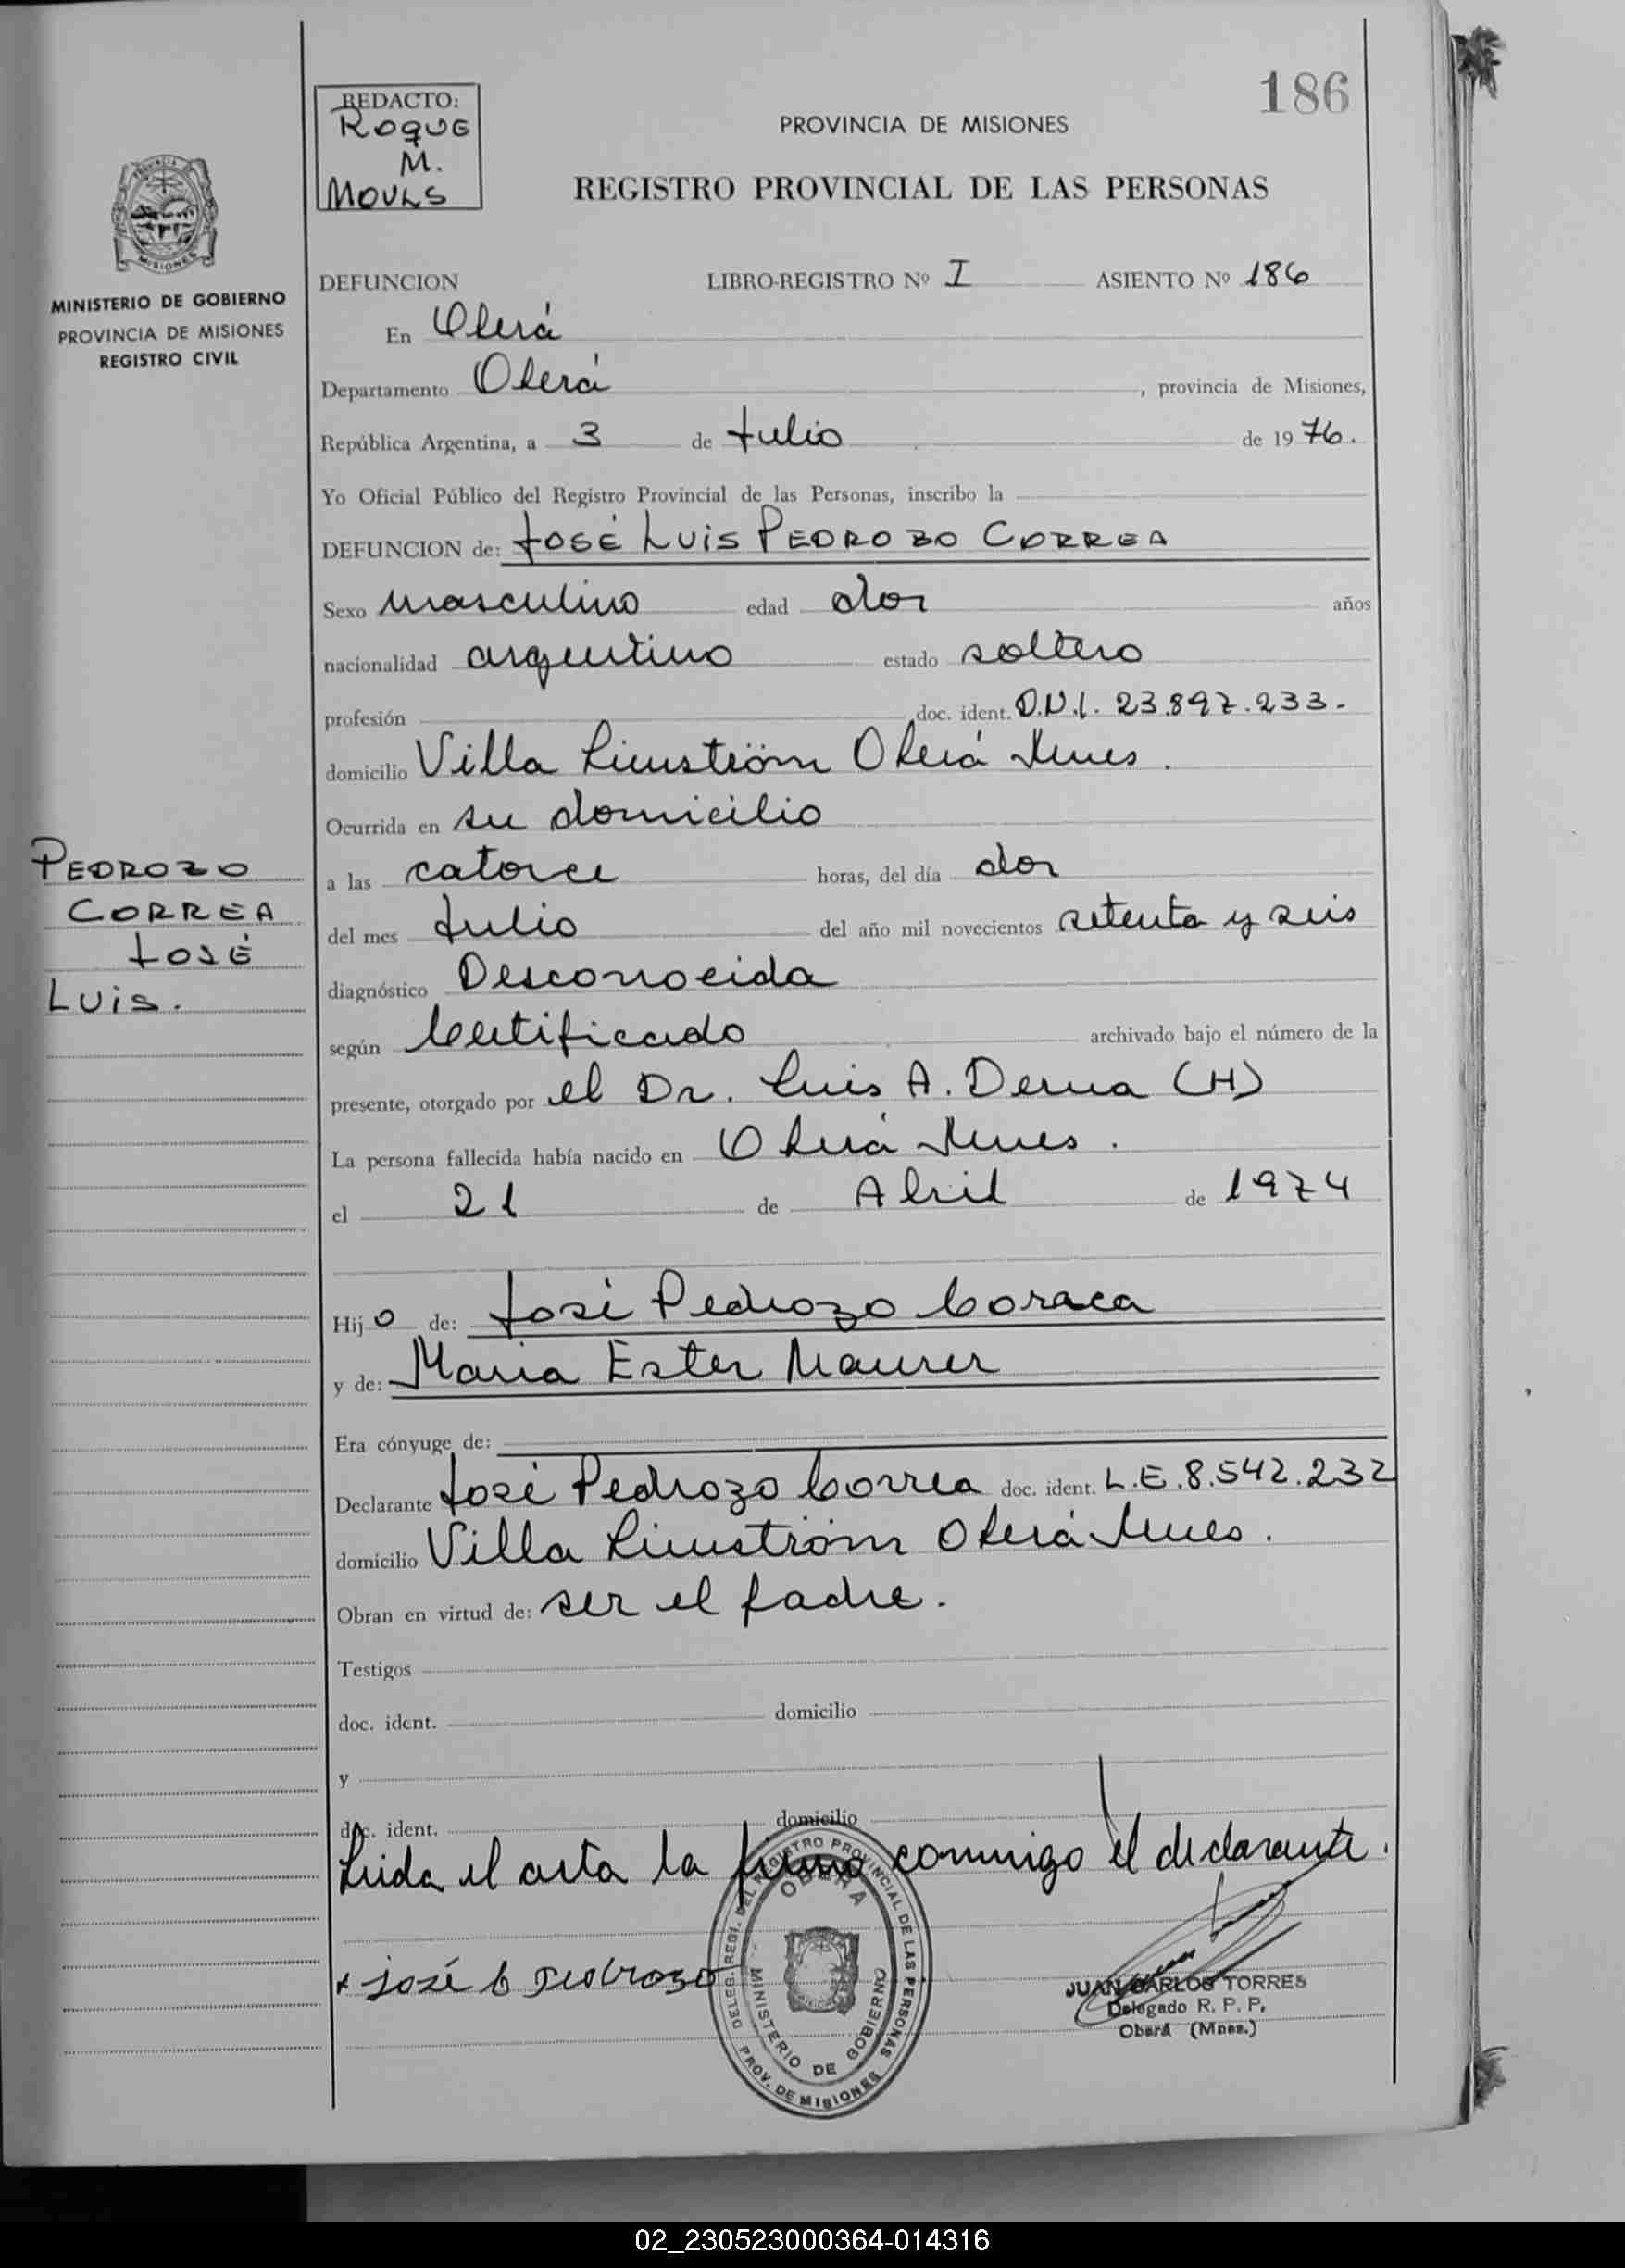 186
REDACTO:
ROQUE
M.
MOULS
PROVINCIA DE MISIONES
REGISTRO PROVINCIAL DE LAS PERSONAS
MINISTERIO DE GOBIERNO
PROVINCIA DE MISIONES
REGISTRO CIVIL
DEFUNCION LIBRO-REGISTRO Nº I ASIENTO Nº 186
En Oberá
Departamento Oberá, provincia de Misiones,
República Argentina, a 3 de Julio de 1976.
Yo Oficial Público del Registro Provincial de las Personas, inscribo la
DEFUNCION de: JOSÉ LUIS PEDROZO CORREA
Sexo masculino edad dos años
nacionalidad argentino estado soltero
profesión doc. ident. D.N.I. 23.897.233.-
domicilio Villa Linströn Oberá Mnes.
Ocurrida en su domicilio
a las catorce horas, del día dos
del mes Julio del año mil novecientos setenta y seis
diagnóstico Desconocida
según Certificado archivado bajo el número de la
presente, otorgado por el Dr. Luis A. Derna (H)
La persona fallecida había nacido en Oberá Mnes.
el 21 de Abril de 1974
Hijo de: José Pedrozo Coraea
y de: Maria Ester Maurer
Era cónyuge de:
Declarante José Pedrozo Correa doc. ident. L.E. 8.542.232
domicilio Villa Linströn Oberá Mnes.
Obran en virtud de: ser el padre.
Testigos
doc. ident. domicilio
y
doc. ident. domicilio
Leida el acta la firma conmigo el declarante.
x José C Pedrozo
PEDROZO
CORREA
JOSÉ
LUIS.
DELEG. REGI. DEL REGISTRO PROVINCIAL DE LAS PERSONAS
OBERA
MINISTERIO DE GOBIERNO
PROV. DE MISIONES
JUAN CARLOS TORRES
Delegado R. P. P.
Oberá (Mnes.)
02_230523000364-014316